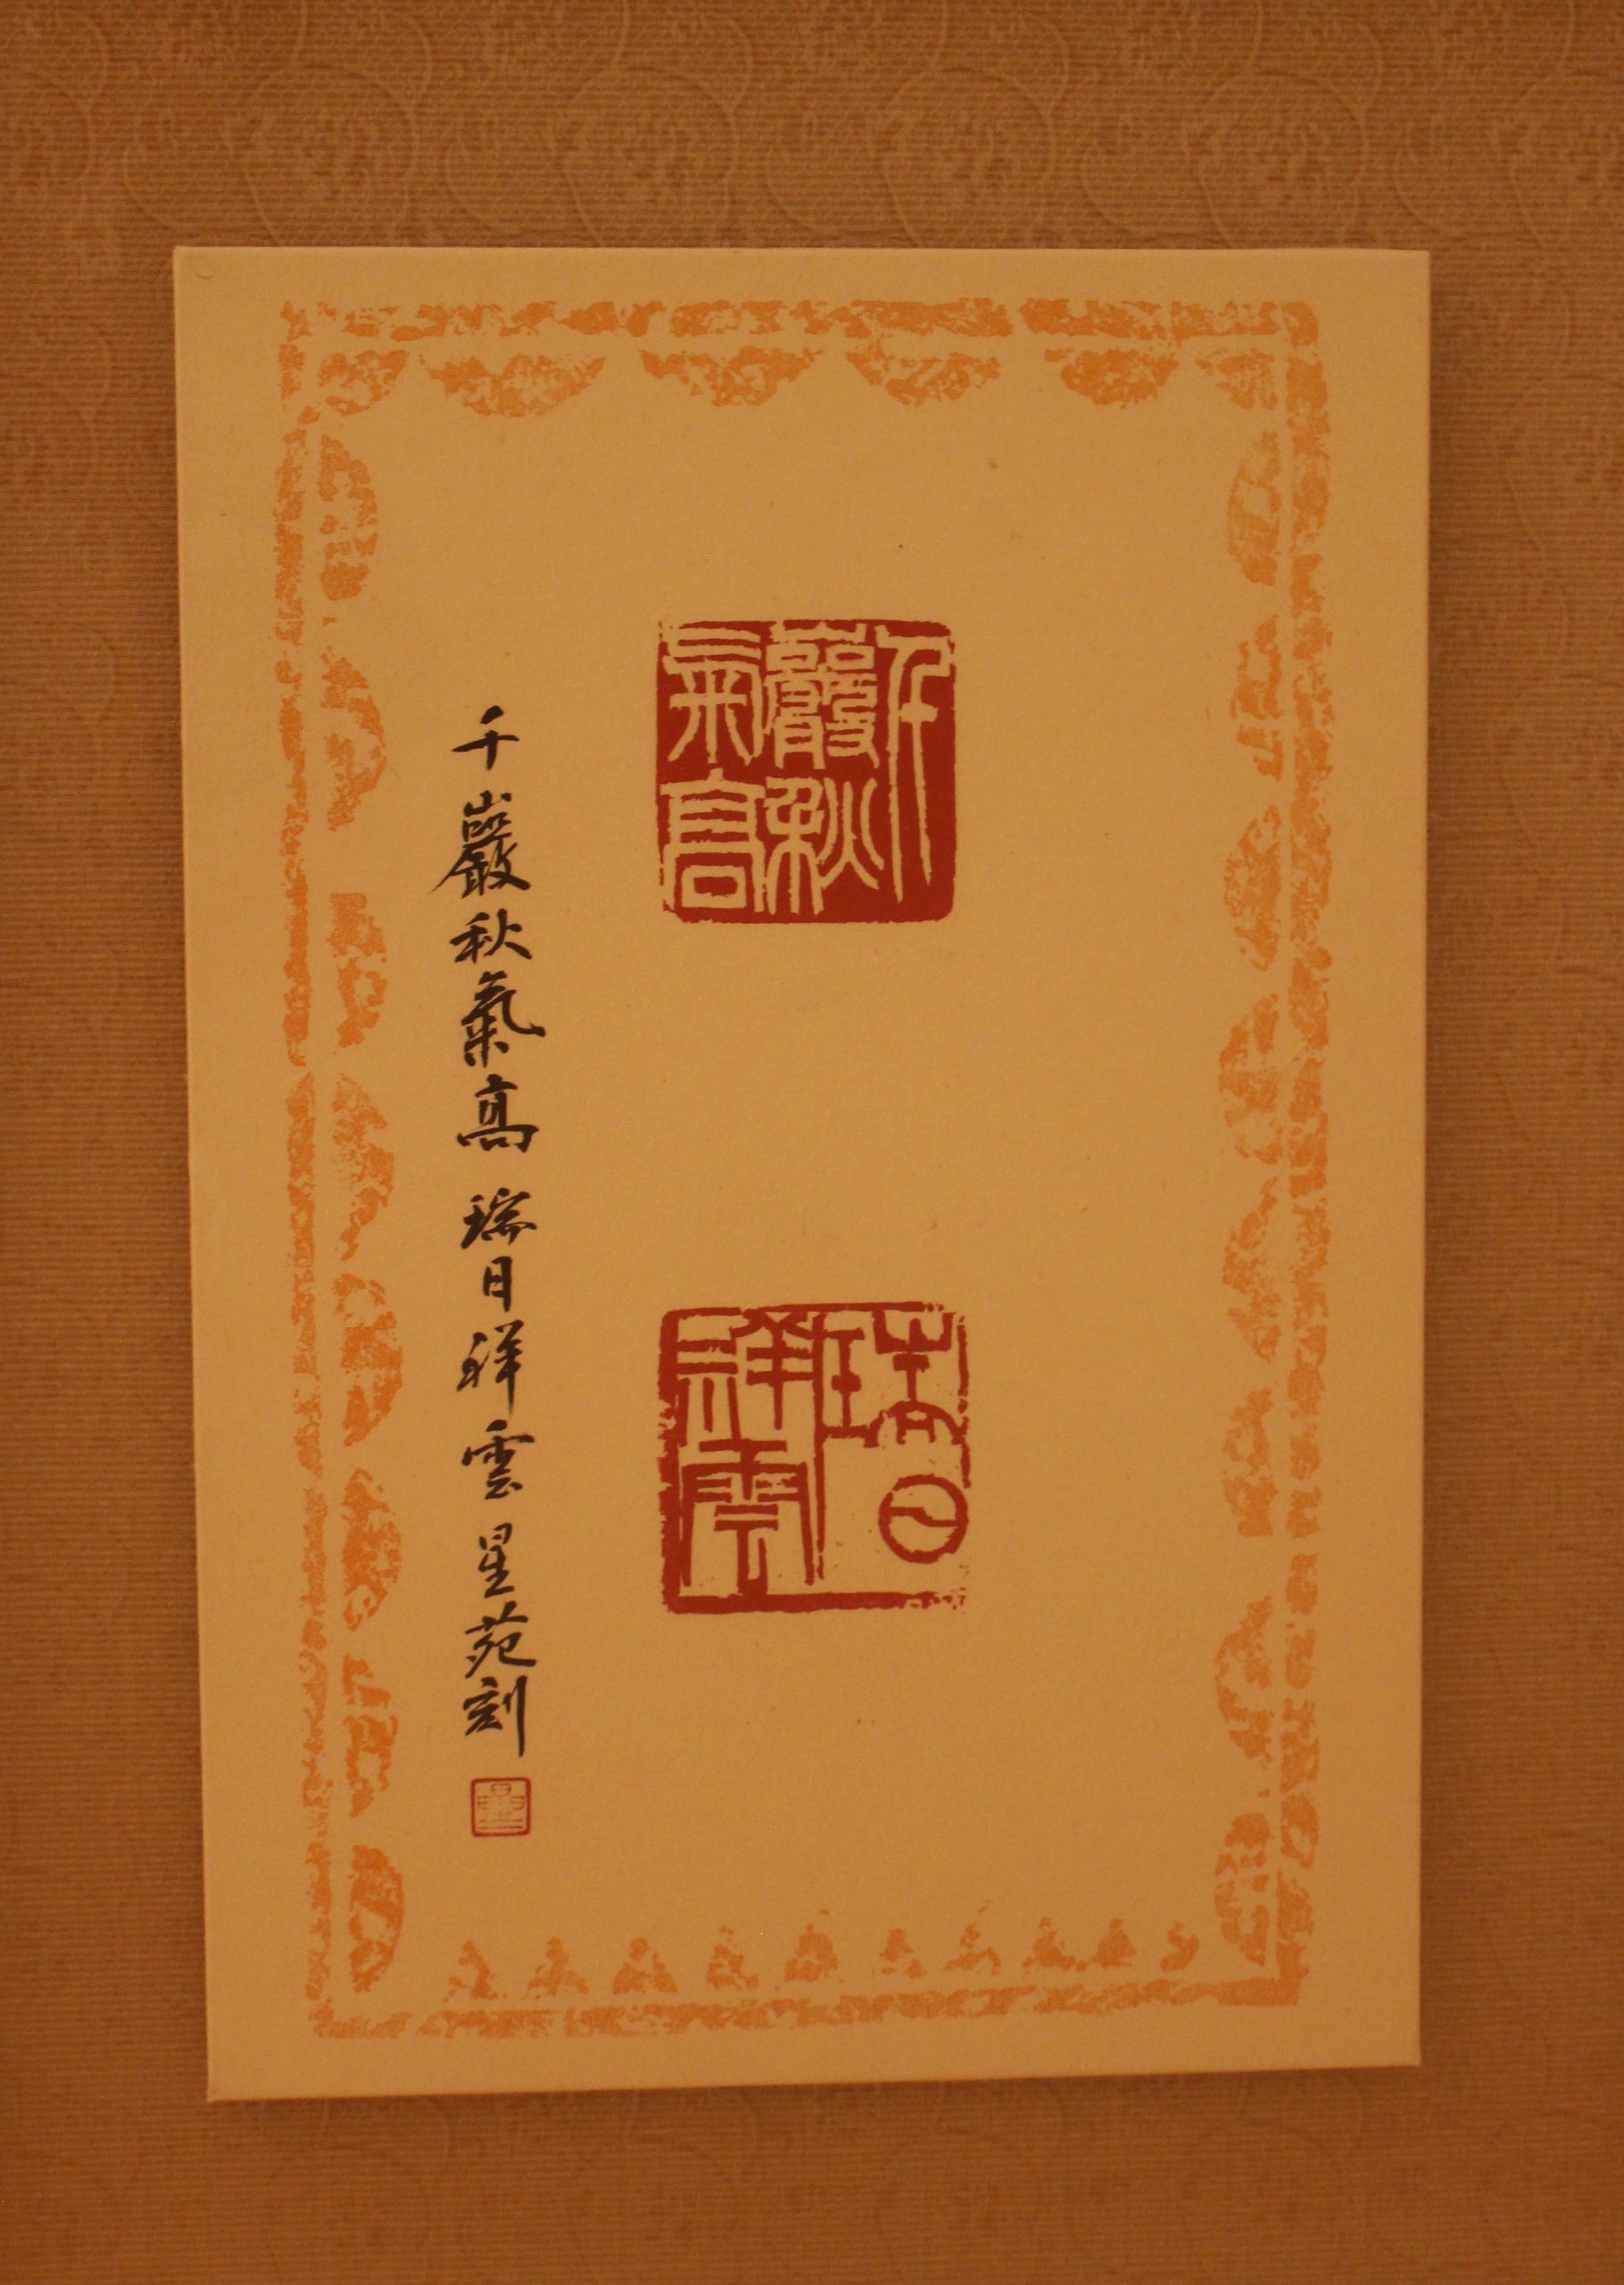 千巖秋氣高
瑞日祥雲
千巖秋氣高 瑞日祥雲 星苑刻